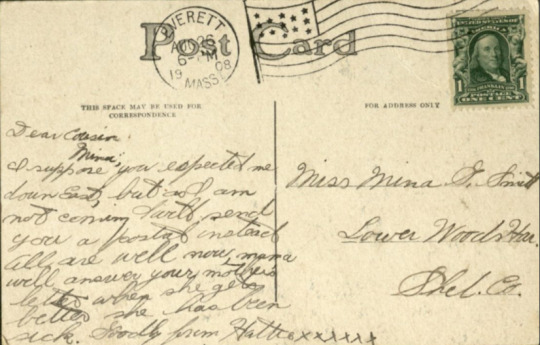 Post Card
EVERETT
AUG 26
6 - PM
19 08
MASS
UNITED STATES OF AMERICA
1 1
FRANKLIN
POSTAGE
ONE CENT
THIS SPACE MAY BE USED FOR
CORRESPONDENCE
FOR ADDRESS ONLY
Dear Cousin
Mina,
I suppose you expected me
down East, but as I am
not coming I will send
you a postal instead
All are well now, mama
will answer your mothers
letter when she gets
better she has been
sick. Goodby from Hattie xxxxxx
Miss Mina F. Smith
Lower Wood Har.
Shel. Co.